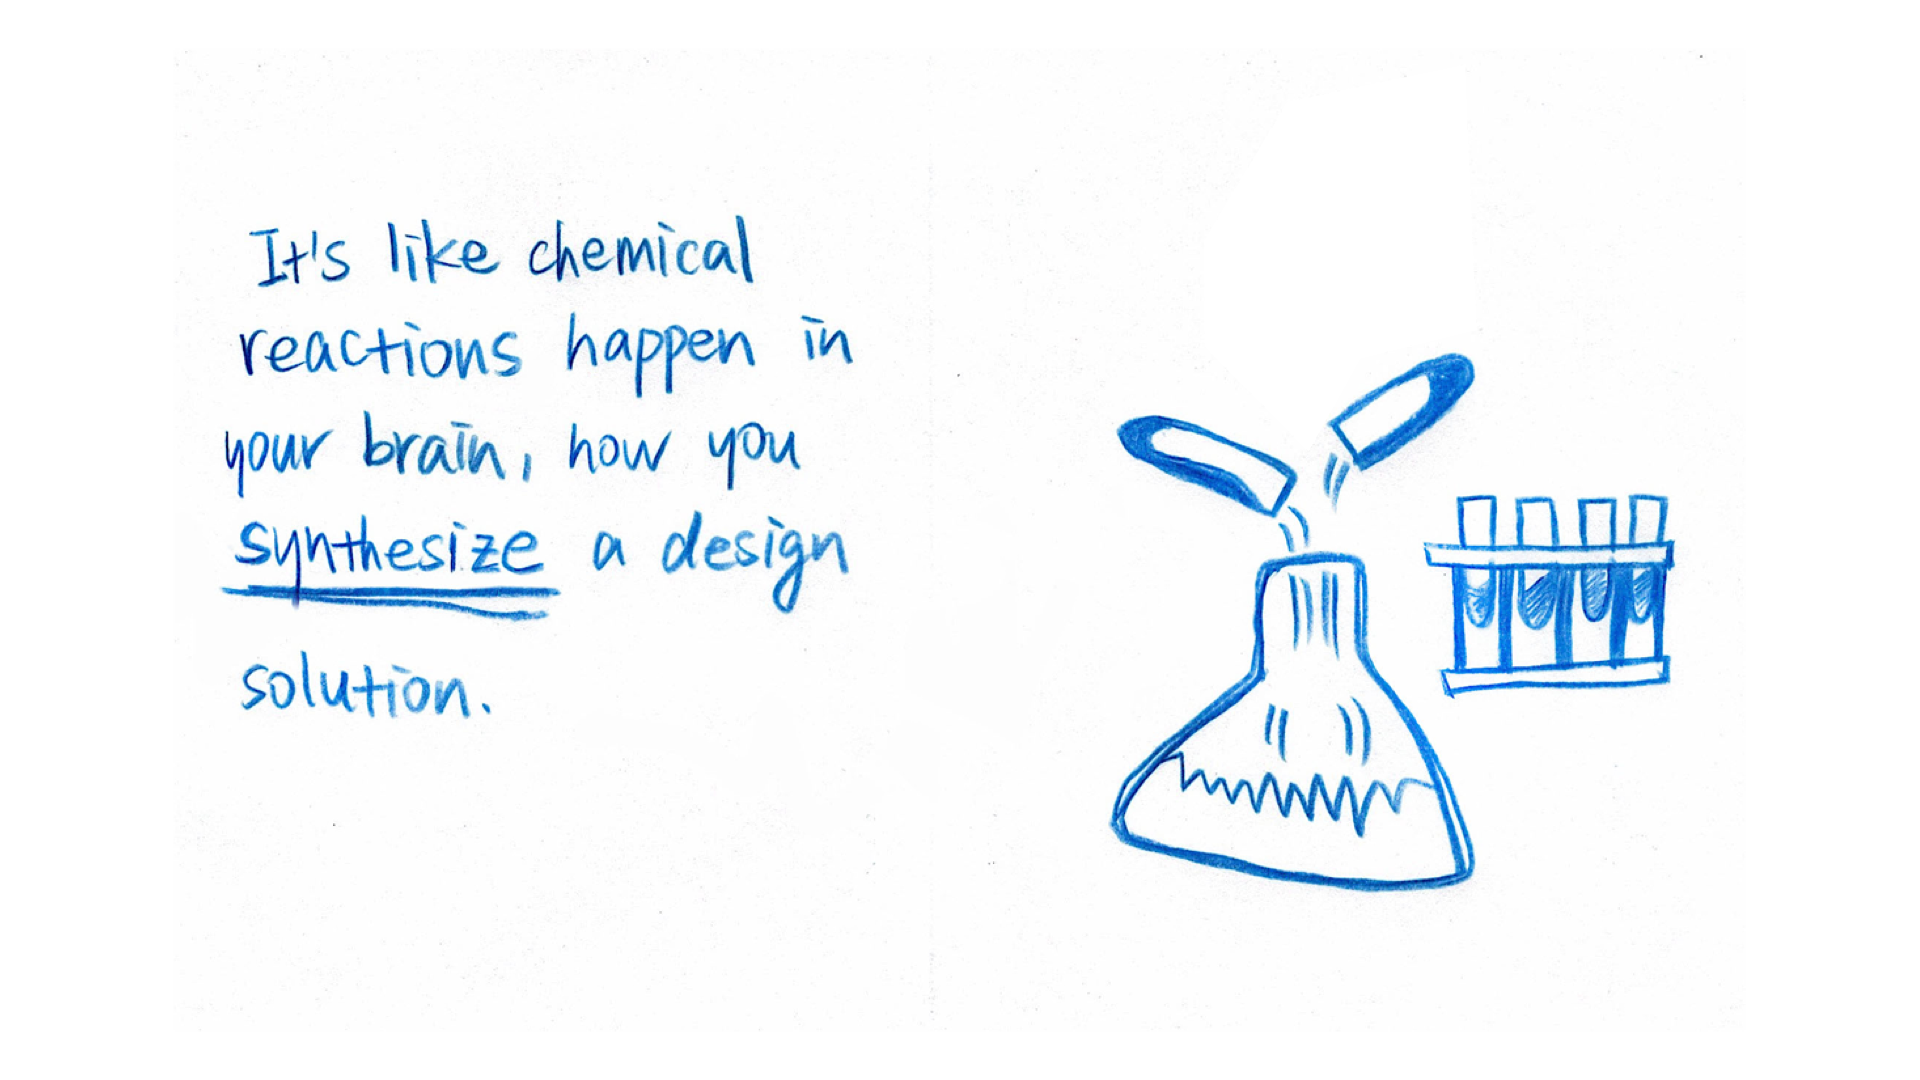 It's like chemical
reactions happen in
your brain, how you
synthesize a design
solution.